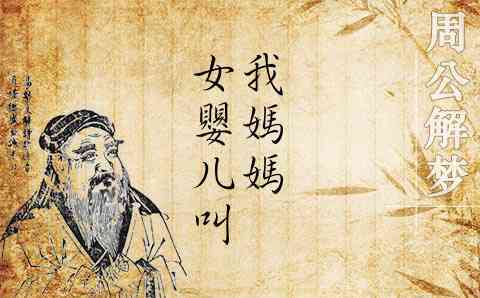 周公解梦
我媽媽
女嬰儿叫